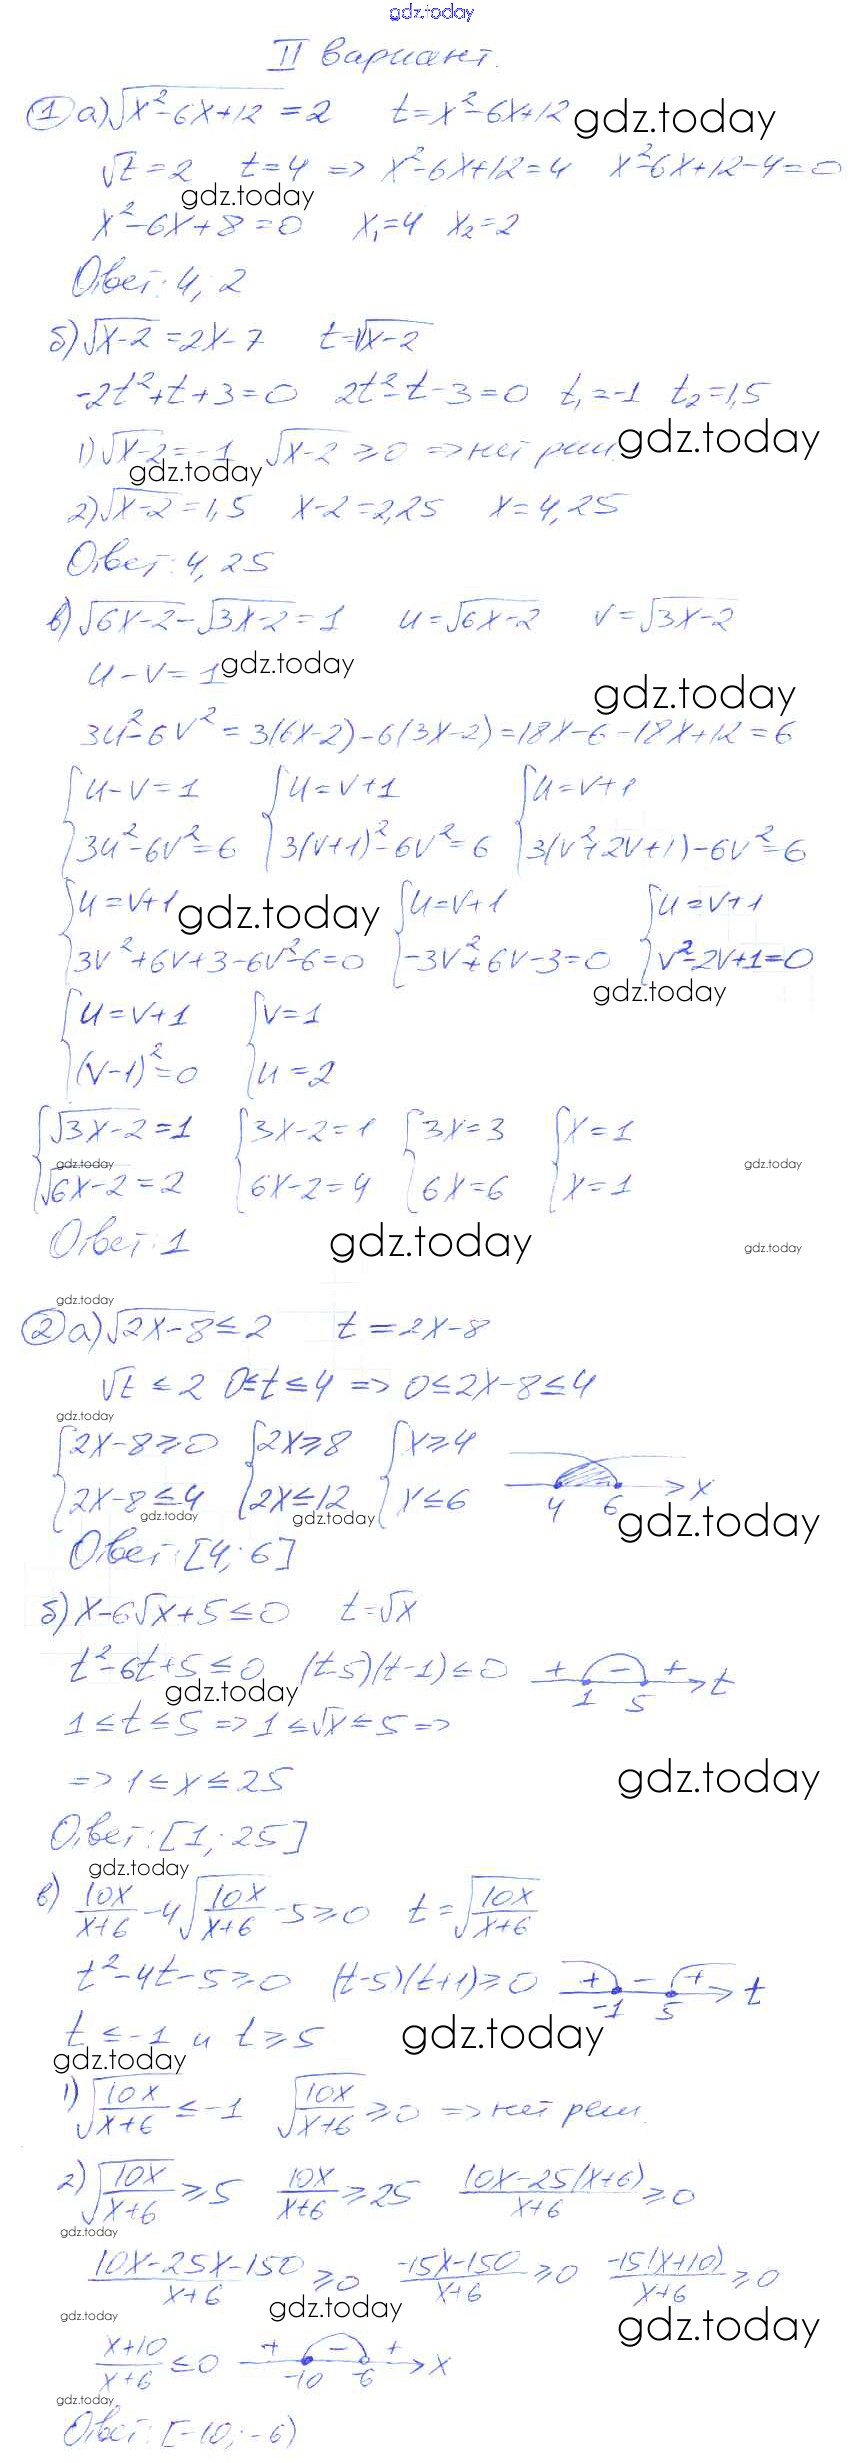 gdz.today
II вариант.
① а) √(x²-6x+12) = 2 t = x²-6x+12 gdz.today
√t = 2 t = 4 => x²-6x+12=4 x²-6x+12-4=0
gdz.today
x²-6x+8=0 x₁=4 x₂=2
Ответ: 4; 2
б) √(x-2) = 2x-7 t=√(x-2)
-2t²+t+3=0 2t²-t-3=0 t₁=-1 t₂=1,5
1) √(x-2) = -1 √(x-2) ≥ 0 => нет реш. gdz.today
gdz.today
2) √(x-2) = 1,5 x-2=2,25 x=4,25
Ответ: 4,25
в) √(6x-2) - √(3x-2) = 1 u=√(6x-2) v=√(3x-2)
u-v=1 gdz.today
gdz.today
3u²-6v² = 3(6x-2)-6(3x-2)=18x-6-18x+12=6
{u-v=1 {u=v+1 {u=v+1
{3u²-6v²=6 {3(v+1)²-6v²=6 {3(v²+2v+1)-6v²=6
{u=v+1 gdz.today {u=v+1 {u=v+1
{3v²+6v+3-6v²-6=0 {-3v²+6v-3=0 {v²-2v+1=0
gdz.today
{u=v+1 {v=1
{(v-1)²=0 {u=2
{√(3x-2)=1 {3x-2=1 {3x=3 {x=1
gdz.today gdz.today
{√(6x-2)=2 {6x-2=4 {6x=6 {x=1
Ответ: 1 gdz.today gdz.today
gdz.today
② а) √(2x-8) ≤ 2 t = 2x-8
√t ≤ 2 0≤t≤4 => 0≤2x-8≤4
gdz.today
{2x-8≥0 {2x≥8 {x≥4
{2x-8≤4 {2x≤12 {x≤6 4 6 x
gdz.today gdz.today gdz.today
Ответ: [4; 6]
б) x-6√x+5≤0 t=√x
t²-6t+5≤0 (t-5)(t-1)≤0 + - + 1 5 t
gdz.today
1≤t≤5 => 1≤√x≤5 =>
=> 1≤x≤25 gdz.today
Ответ: [1; 25]
gdz.today
в) 10x/(x+6) - 4√(10x/(x+6)) - 5 ≥ 0 t = √(10x/(x+6))
t²-4t-5≥0 (t-5)(t+1)≥0 + - + -1 5 t
t≤-1 и t≥5 gdz.today
gdz.today
1) √(10x/(x+6)) ≤ -1 √(10x/(x+6)) ≥ 0 => нет реш.
2) √(10x/(x+6)) ≥ 5 10x/(x+6) ≥ 25 (10x-25(x+6))/(x+6) ≥ 0
gdz.today
(10x-25x-150)/(x+6) ≥ 0 (-15x-150)/(x+6) ≥ 0 -15(x+10)/(x+6) ≥ 0
gdz.today gdz.today gdz.today
(x+10)/(x+6) ≤ 0 + - + -10 -6 x
gdz.today
Ответ: [-10; -6)